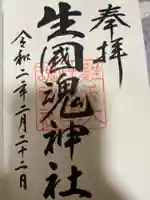 奉拝
生國魂神社
令和二年二月二十二日